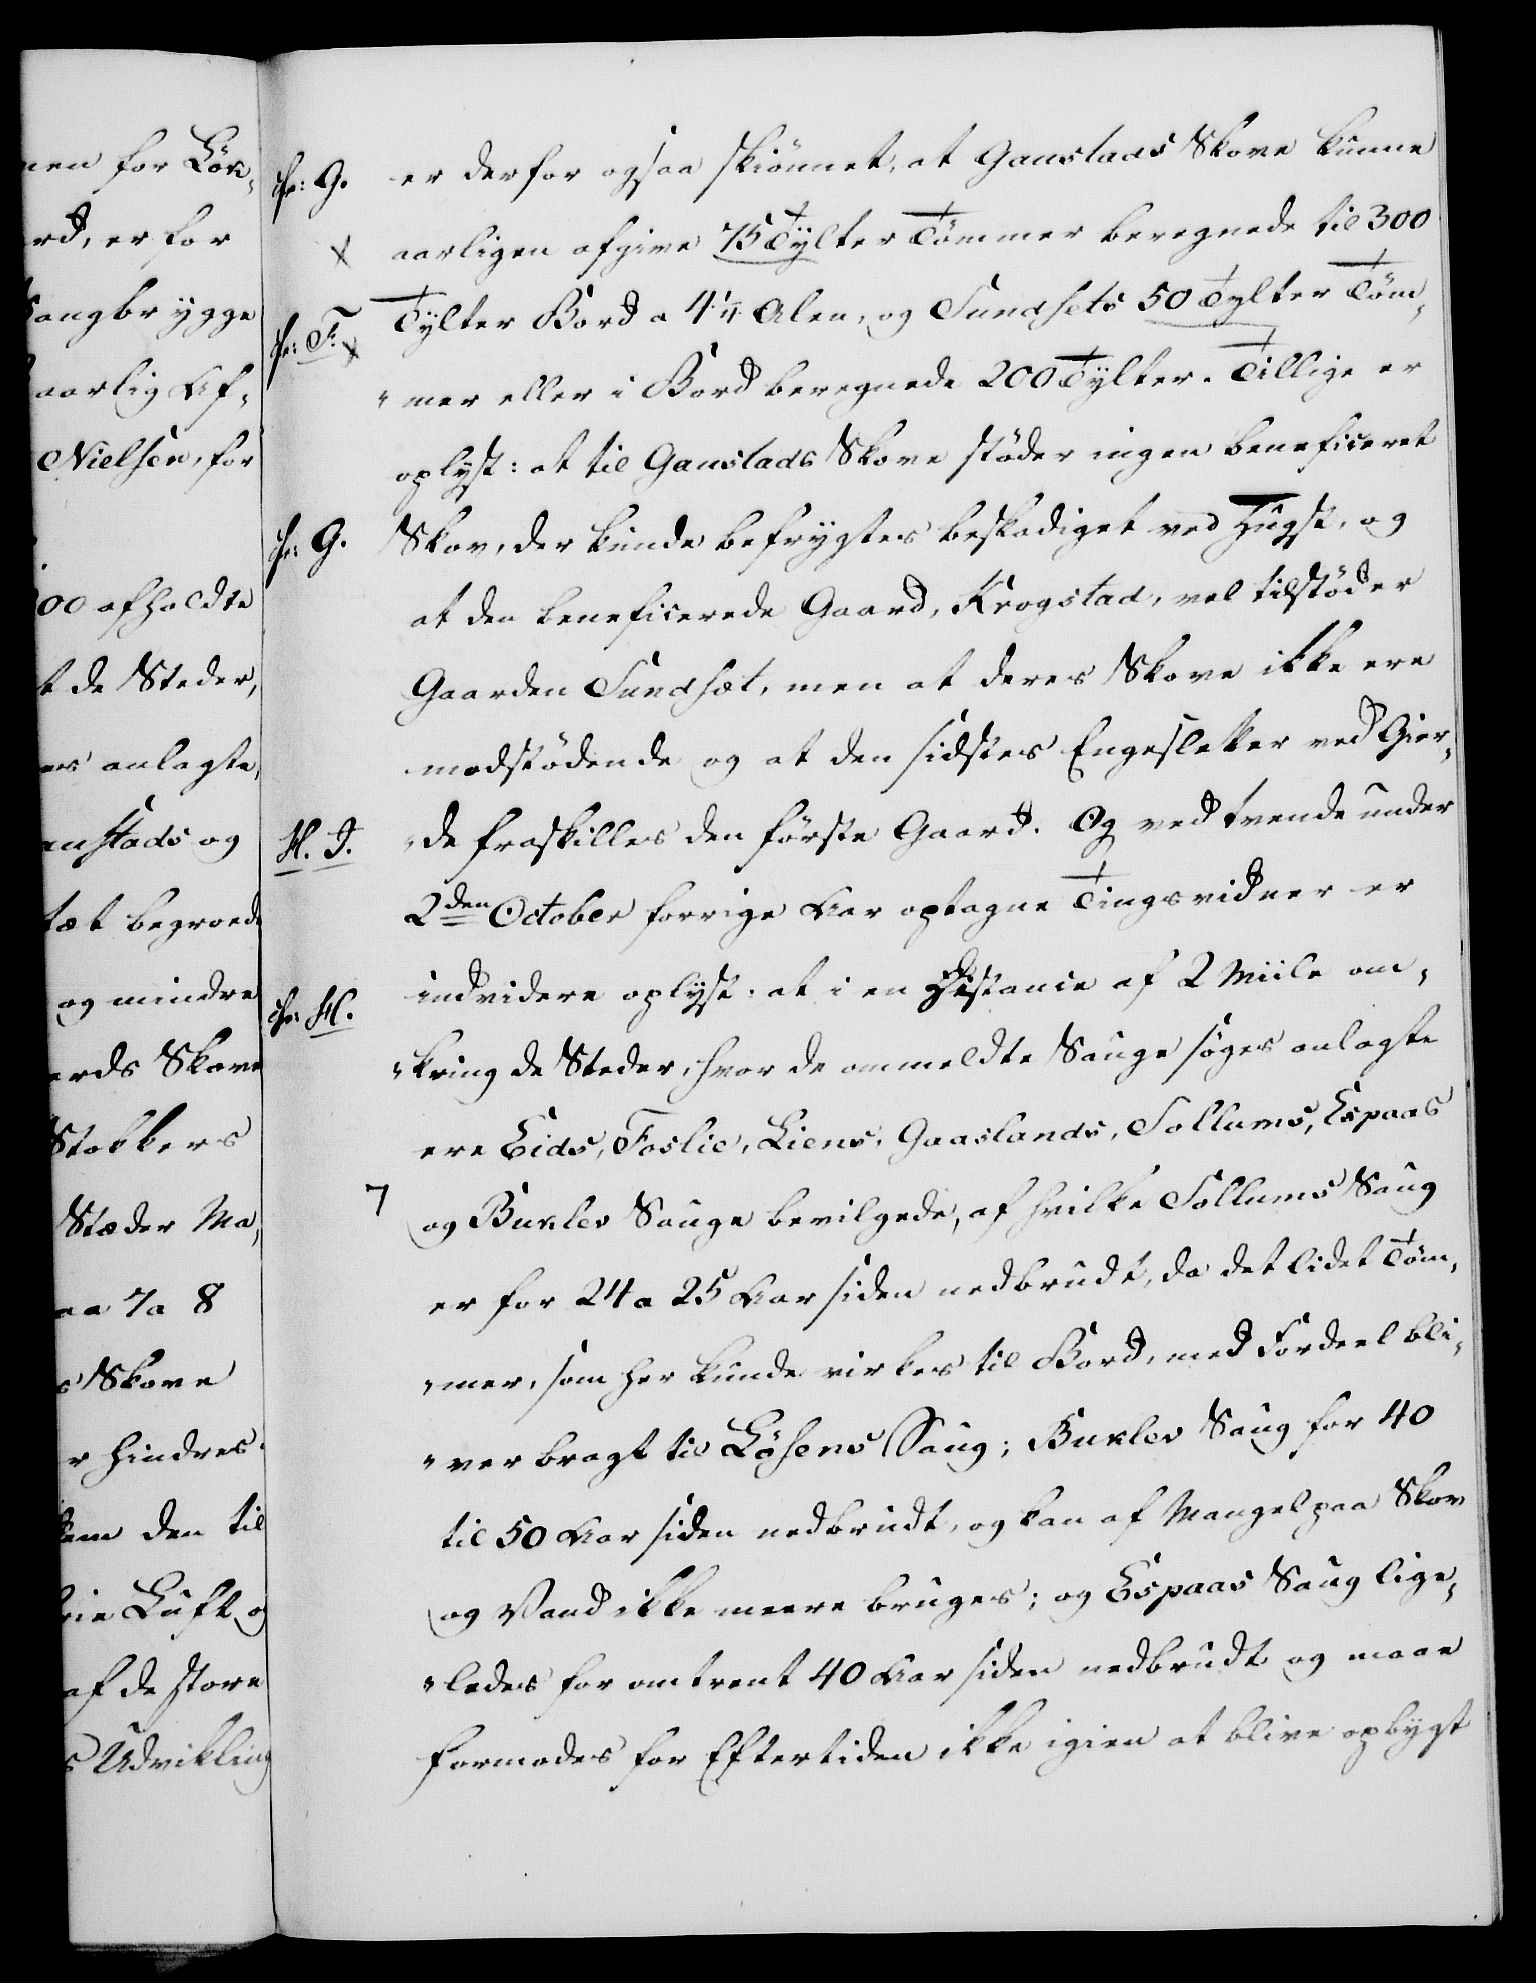 nen for Løk,
rd, er for
Saugbrygge
aarlig Af,
Nielsen, for
00 afholdte
t de Steder,
er anlagte,
anstads og
tæt begroed
og mindre
erds Skove
Stokkers
Stæder Ma,
aa 7 a 8
s Skove
r hindres
dem den til
frie Luft og
af de store
s Udvikling
cfr: G. er derfor ogsaa skiønnet, at Ganstads Skove kunne
x aarligen afgive 75 Tylter Tømmer beregnede til 300
cfr: F. x Tylter Bord a 4 1/4 Alen, og Sundsets 50 Tylter Tøm,
"mer eller i Bord beregnede 200 Tylter. Tillige er
oplyst: at til Ganstads Skove støder ingen beneficeret
cfr: G. Skov, der kunde befrygtes beskadiget ved Hugst, og
at den beneficerede Gaard, Krogstad, vel tilstøder
Gaarden Sundsæt, men at deres Skove ikke ere
modstødende og at den sidstes Engesletter ved Gier,
H. I. "de fraskilles den første Gaard. Og ved tvende under
2den October forrige Aar optagne Tingsvidner er
cfr: H. indvidere oplyst: at i en Distance af 2 Miile om,
"kring de Steder, hvor de ommeldte Sauge søges anlagte
ere Eids, Foslie, Liens, Gaaslands, Sollums, Espaas
7 og Buxlev Sauge bevilgede, af hvilke Sollums Saug
er for 24 a 25 Aar siden nedbrudt, da det lidet Tøm,
"mer, som her kunde virkes til Bord, med Fordeel bli,
"ver bragt til Løsens Saug; Buxlev Saug for 40
til 50 Aar siden nedbrudt, og kan af Mangel paa Skov
og Vand ikke meere bruges; og Espaas Saug lige,
"ledes for omtrent 40 Aar siden nedbrudt og maae
formodes for Eftertiden ikke igien at blive opbygt